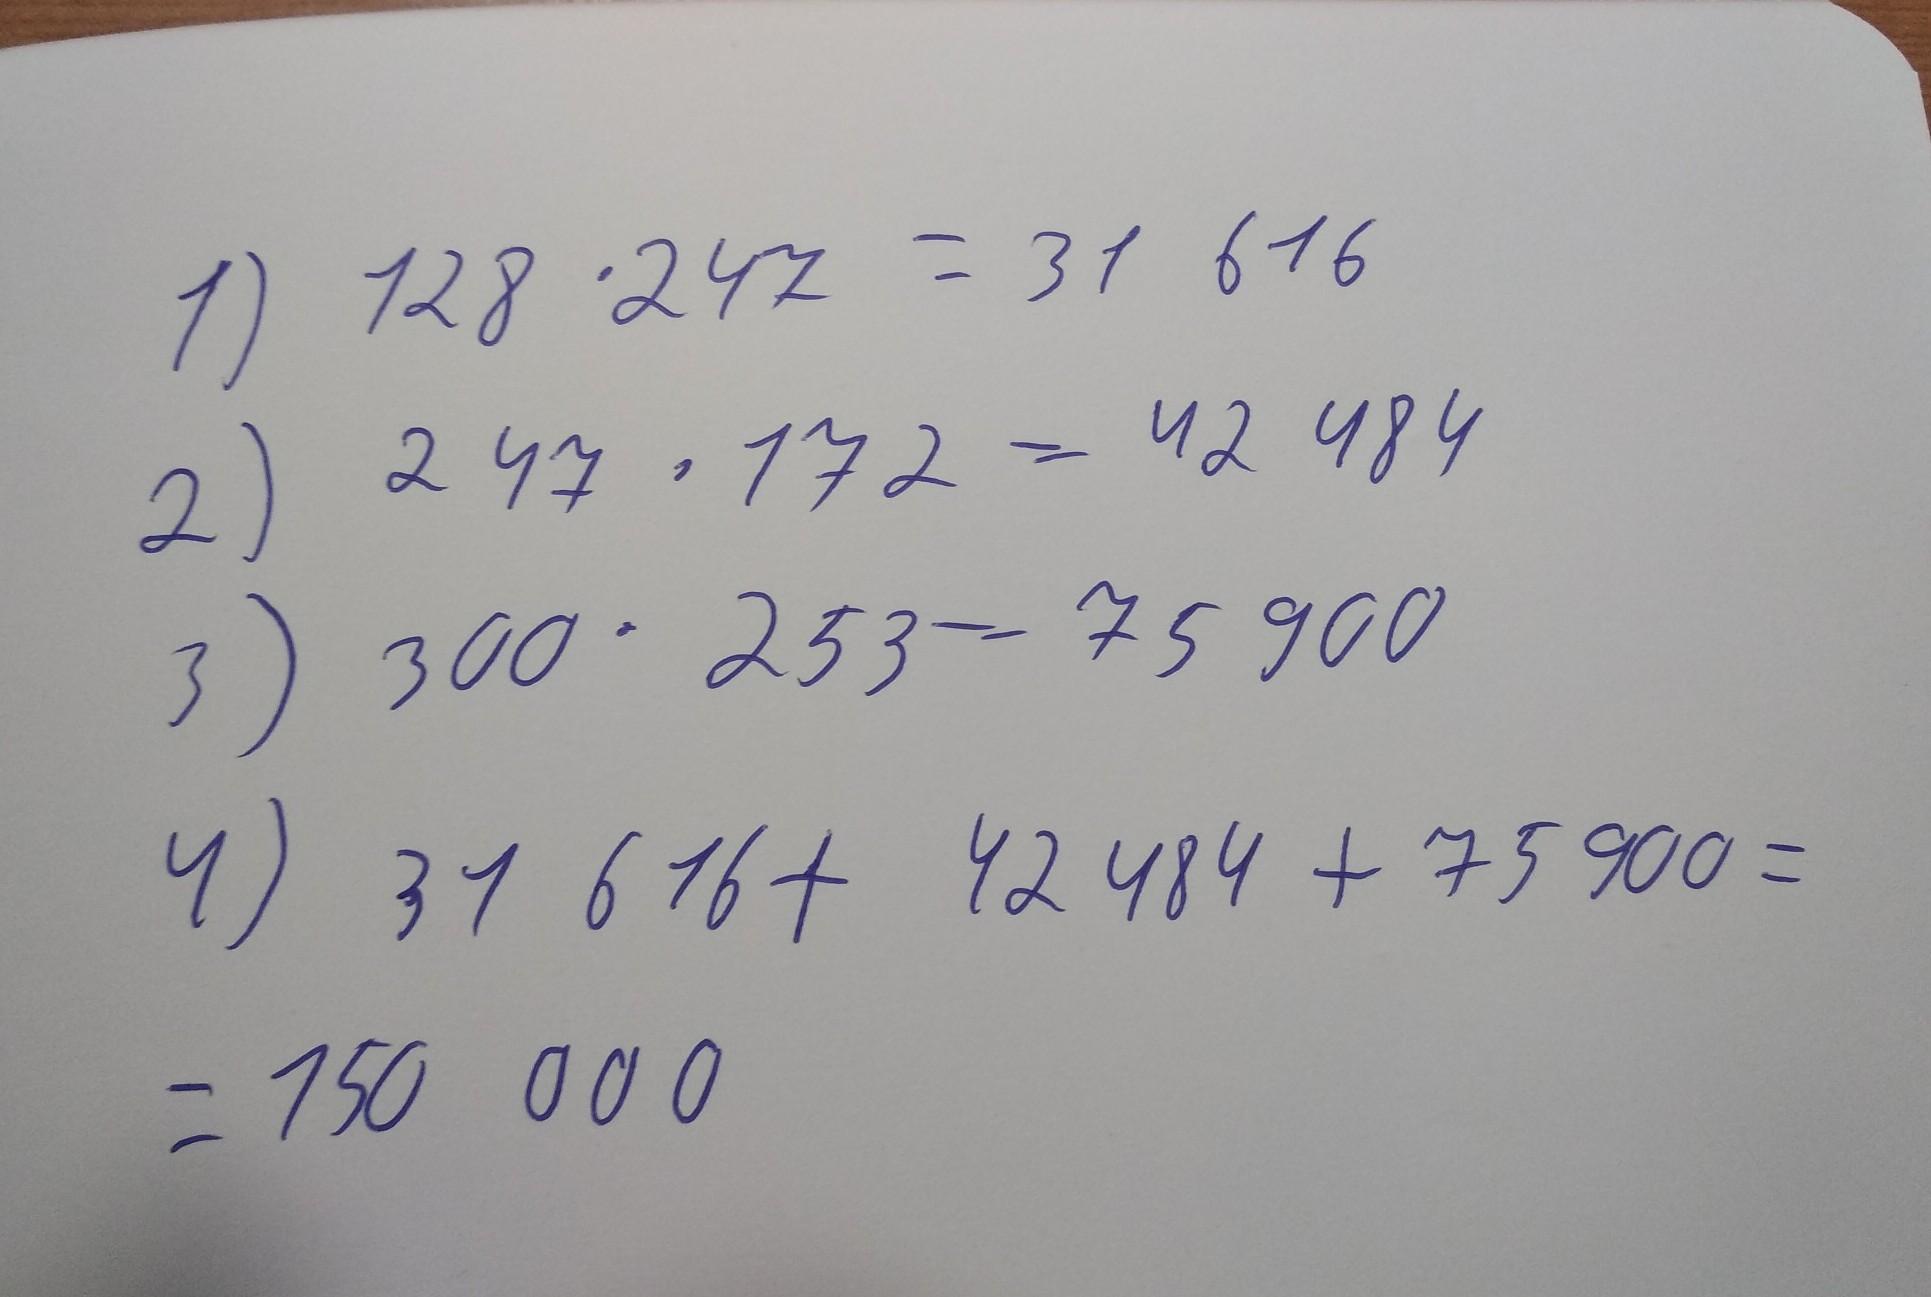 1) 128 · 247 = 31 616
2) 247 · 172 = 42 484
3) 300 · 253 = 75 900
4) 31 616 + 42 484 + 75 900 =
= 150 000